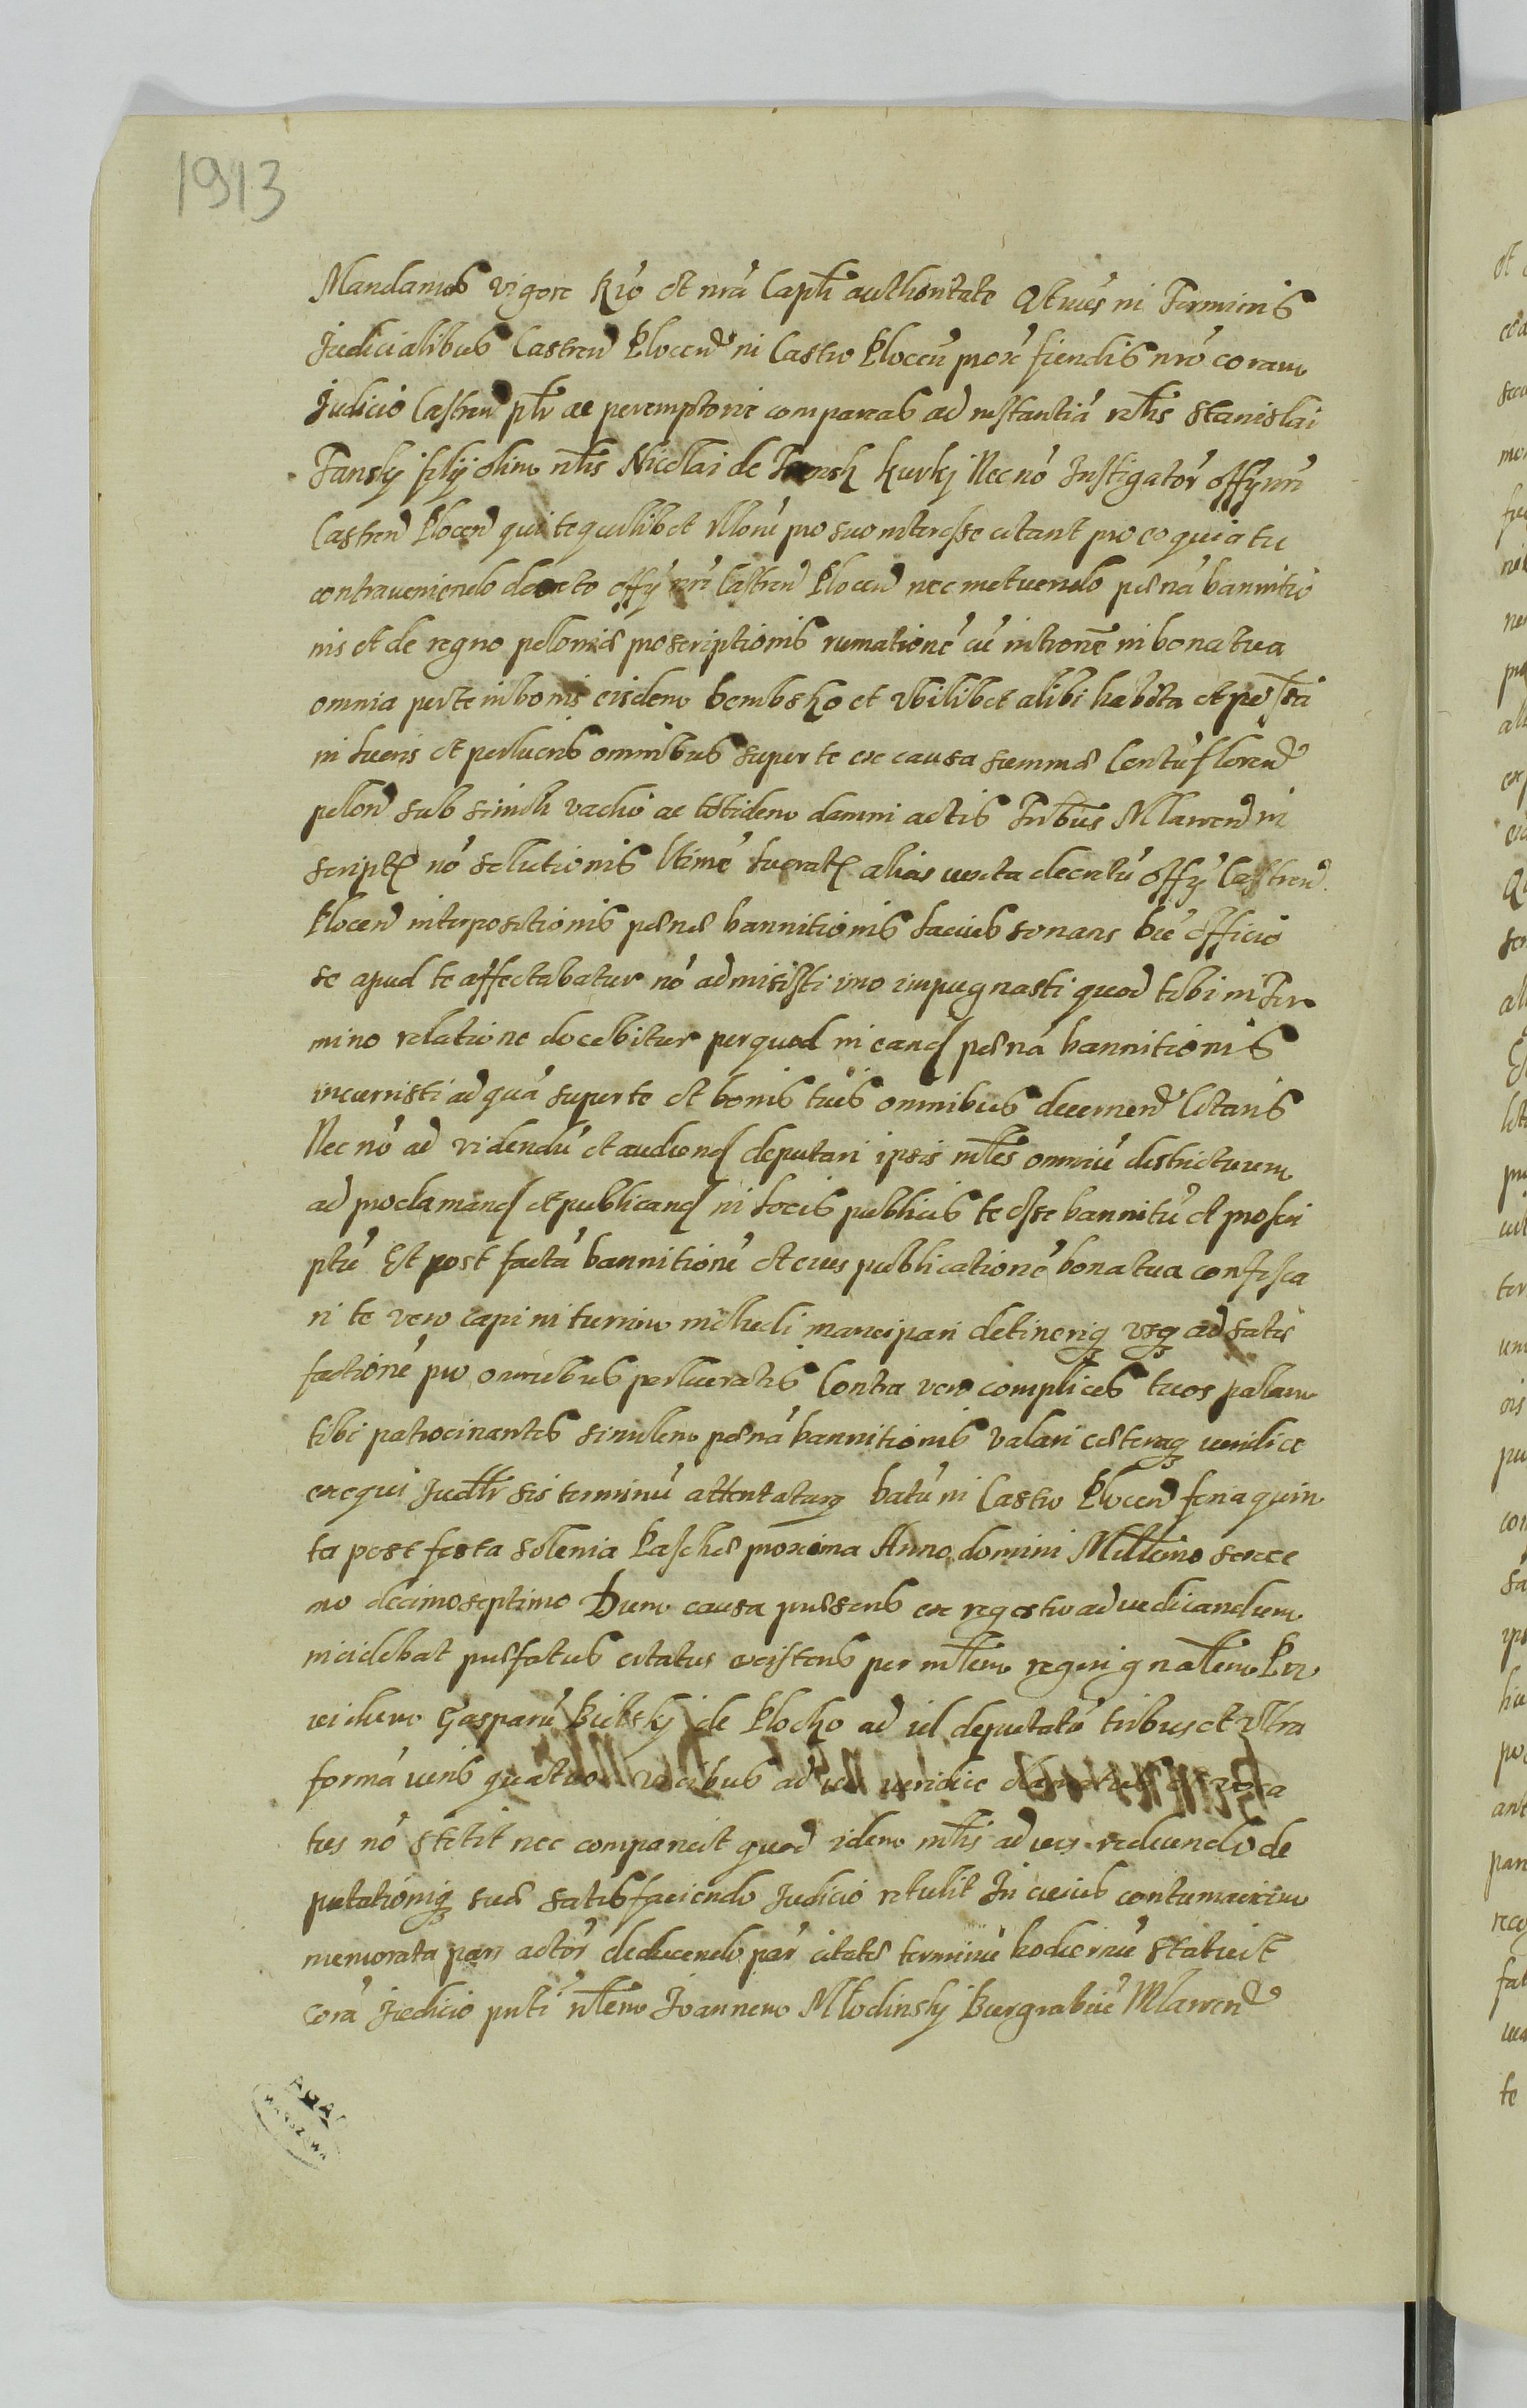 1913
Mandamus vigore R̃io et nrã Capłi authoritate Qtnus in Terminis
Judicialibus Castren Plocen in Castro Plocen prox fiendis nrõ coram
Judicio Castren płr ac peremptorie compareas ad instantiã nłis Stanislai
Tansky filij olim nłis Nicolai de Tansk kurkj Nec nõ Instigator offÿ nri
Castren Plocen qui te quilibet illorũ pro suo interesse citant pro eo quia tu
contraveniendo decreto offÿ nri Castren Plocen nec metuendo pœnã bannitio
nis et de regno poloniæ proscriptionis rumationẽ cũ intronẽ in bona tua
omnia per te in bonis eisdem bembsko et ubilibet alibi habita et possa
in lucris et perlucris omnibus super te ex causa summæ Centũ floren
polon sub simili vadio ac totidem damni actis Mlaven in
script nõ solutionis ltimẽ lucrat alias iuxta decretũ offÿ Castren
Plocen interpositionis pœnæ bannitionis latius sonans officio
se apud te affectabatur nõ admisisti imo impugnasti quod tibi in Ter
mino relatione docebitur per quod in eand pœnã bannitionis
incurristi ad quã super te et bonis tuis omnibus decernend Citaris
Nec nõ ad videndũ et audiend deputari ipsis młes omniũ districtuum
ad proclamand et publicand in locis publicis te esse bannitũ et proscri
ptũ Et post factã bannitionẽ et eius publicationẽ bona tua confisca
ri te vero capi in turrim includi mancipari detineriq usq ad satis
factionẽ pro omnibus perlucratis Contra vero complices tuos palam
tibi patrocinantes similem pœnã bannitionis valari cæteraq iuridice
exequi Judłr sis terminũ attentaturq batũ in Castro Plocen feria quin
ta post festa solenia Paschæ proxima Anno domini Millimo sexce
no decimo septimo Dum causa præsens ex regestro adiudicandum
incidebat præfatus citatus existens per młem regni gnałem Pro
vidum Gasparũ Bielskj de Plocko ad id deputatũ tribus et ultra
formã iuris quatuor vocibus ad ius iuridice clamatus et voca
tus nõ stetit nec comparuit quod idem młis ad ius redeundo de
putationiq suæ satisfaciendo Judicio retulit In cuius contumaciam
memorata pars actor deducendo par citatæ terminũ hodiernũ statuit
corã Judicio pnti nłem Joannem Młodinskj Burgrabiũ Mlaven